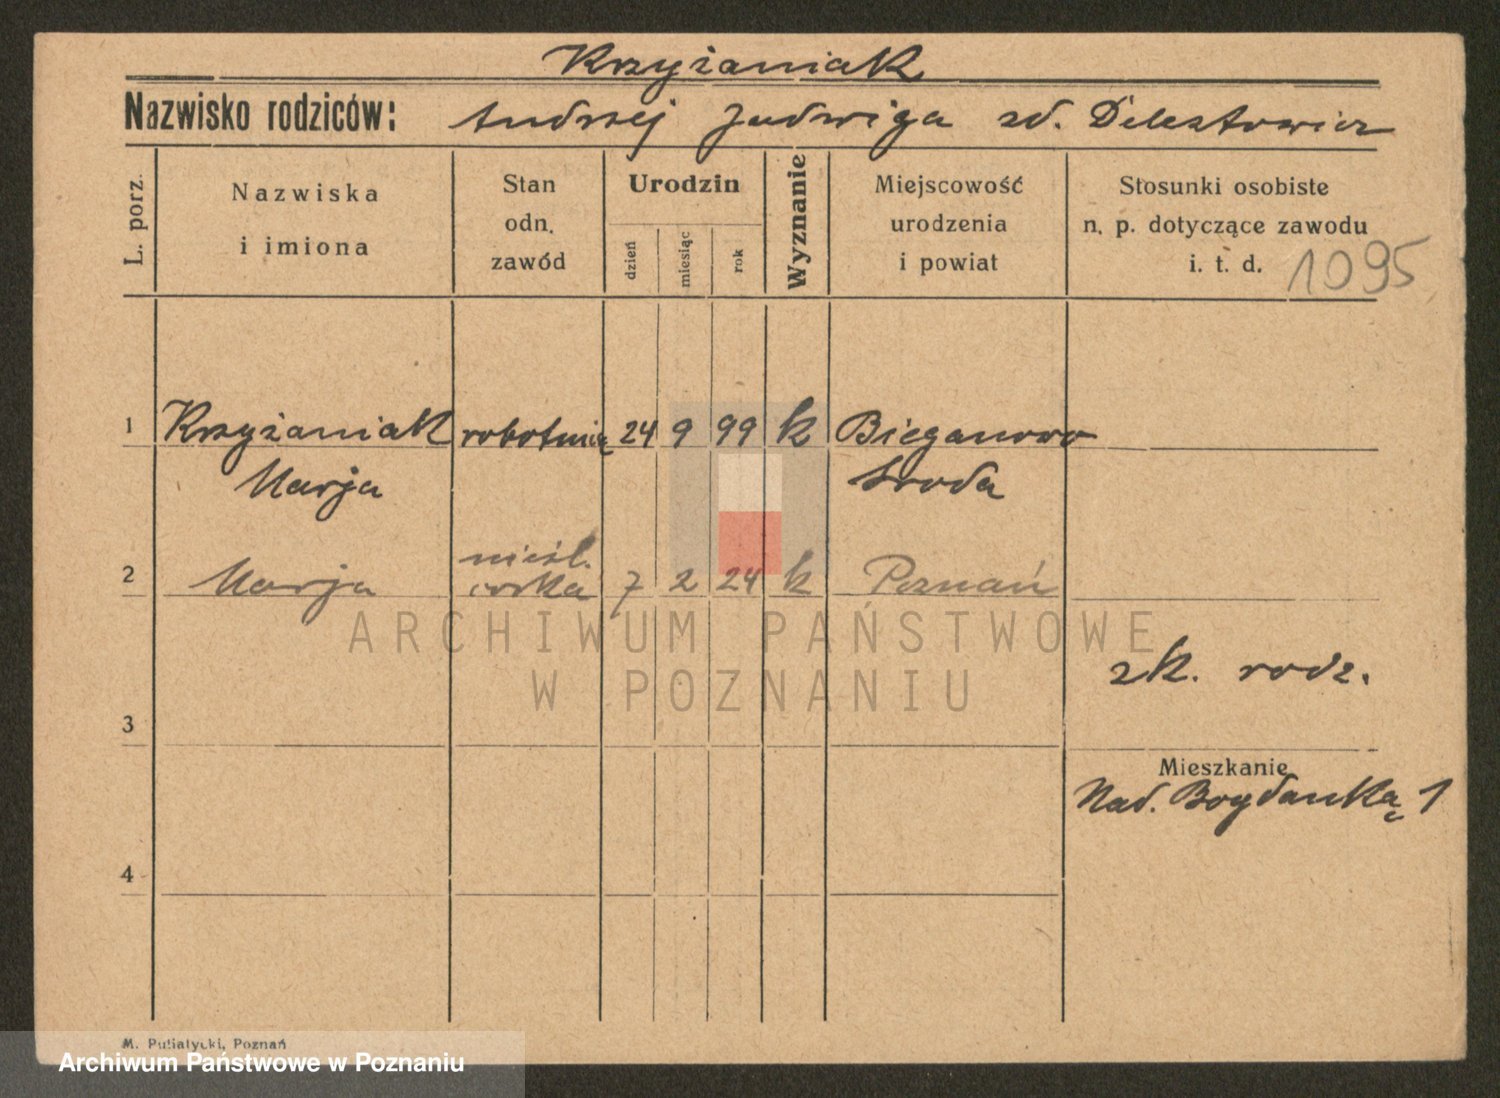 Krzyżaniak
Nazwisko rodziców: Andrzej Jadwiga zd.
L. porz.
Nazwiska
i imiona
Stan
odn.
zawód
Urodzin
dzień
miesiąc
rok
Wyznanie
Miejscowość
urodzenia
i powiat
Stosunki osobiste
n. p. dotyczące zawodu
i. t. d.
1095
1 Krzyżaniak robotnicą 24 9 99 k Bieganowo
Marja Środa
nieśl.
2 Marja córka 7 2 24 k Poznań
ARCHIWUM PAŃSTWOWE
W POZNANIU
zk. rodz.
3
Mieszkanie
Nad. Bogdanką 1
4
M. Putiatycki, Poznań
Archiwum Państwowe w Poznaniu